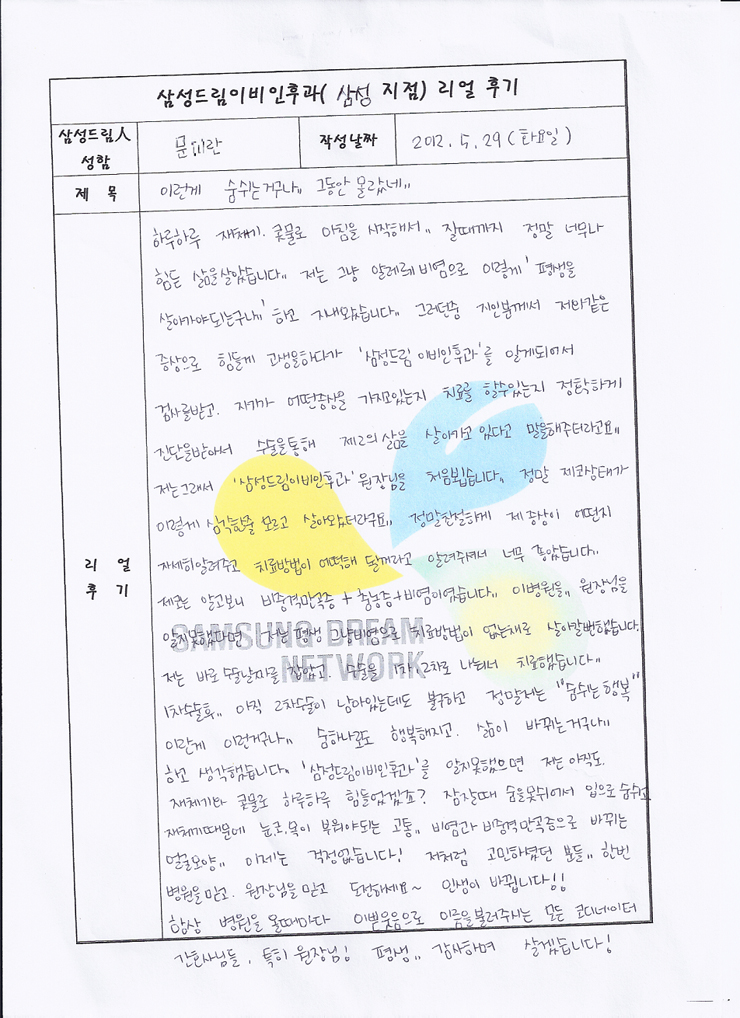 삼성드림이비인후과( 삼성 지점) 리얼 후기
삼성드림人 성함
문 란
작성날짜
2012. 5. 29 (화요일)
제 목
이런게 숨쉬는거구나,, 그동안 몰랐네,,
리 얼 후 기
하루하루 재채기. 콧물로 아침을 시작해서,, 잘때까지 정말 너무나
힘든 삶을살았습니다,, 저는 그냥 알레르레비염으로 이렇게 '평생을
살아가야되는구나,' 하고 지내왔습니다,, 그러던중 지인분께서 저와같은
증상으로 힘들게 고생을하다가 '삼성드림 이비인후과'를 알게되어서
검사를받고. 자기가 어떤증상을 가지고있는지 치료를 할수있는지 정확하게
진단을받아서 수술을통해 제2의삶을 살아가고 있다고 말을해주더라고요,,
저는그래서 '삼성드림이비인후과'원장님을 처음뵙습니다,, 정말 제코상태가
이렇게 심각한줄 모르고 살아왔더라구요,, 정말친절하게 제증상이 어떤지
자세히알려주고 치료방법이 어떡해 될꺼라고 알려주셔서 너무 좋았습니다,,
제코는 알고보니 비중격만곡증 + 축농증+비염이였습니다,, 이병원을,, 원장님을
알지못했다면 저는평생 그냥비염으로 치료방법이 없는채로 살아갈뻔했습니다.
SAMSUNG DREAM
NETWORK
저는 바로 수술날짜를 잡았고. 수술을 1차 2차로 나눠서 치료했습니다,,
1차수술후,, 아직 2차수술이 남아있는데도 불구하고 정말저는 "숨쉬는행복"
이란게 이런거구나,, 숨하나로도 행복해지고. 삶이 바뀌는거구나,,
하고 생각했습니다. '삼성드림이비인후과'를 알지못했으면 저는 아직도.
재채기와 콧물로 하루하루 힘들었겠죠? 잠잘때 숨을못쉬어서 입으로 숨쉬고
재채기때문에 눈,코,목이 부워야되는 고통,, 비염과 비중격만곡증으로 바뀌는
얼굴모양,, 이제는 걱정없습니다! 저처럼 고민하셨던 분들,, 한번
병원을믿고. 원장님을 믿고 도전하세요~ 인생이 바뀝니다!!
항상 병원을 올때마다 이쁜웃음으로 이름을불러주시는 모든 코디네이터
간호사님들, 특히 원장님! 평생,, 감사하며 살겠습니다!